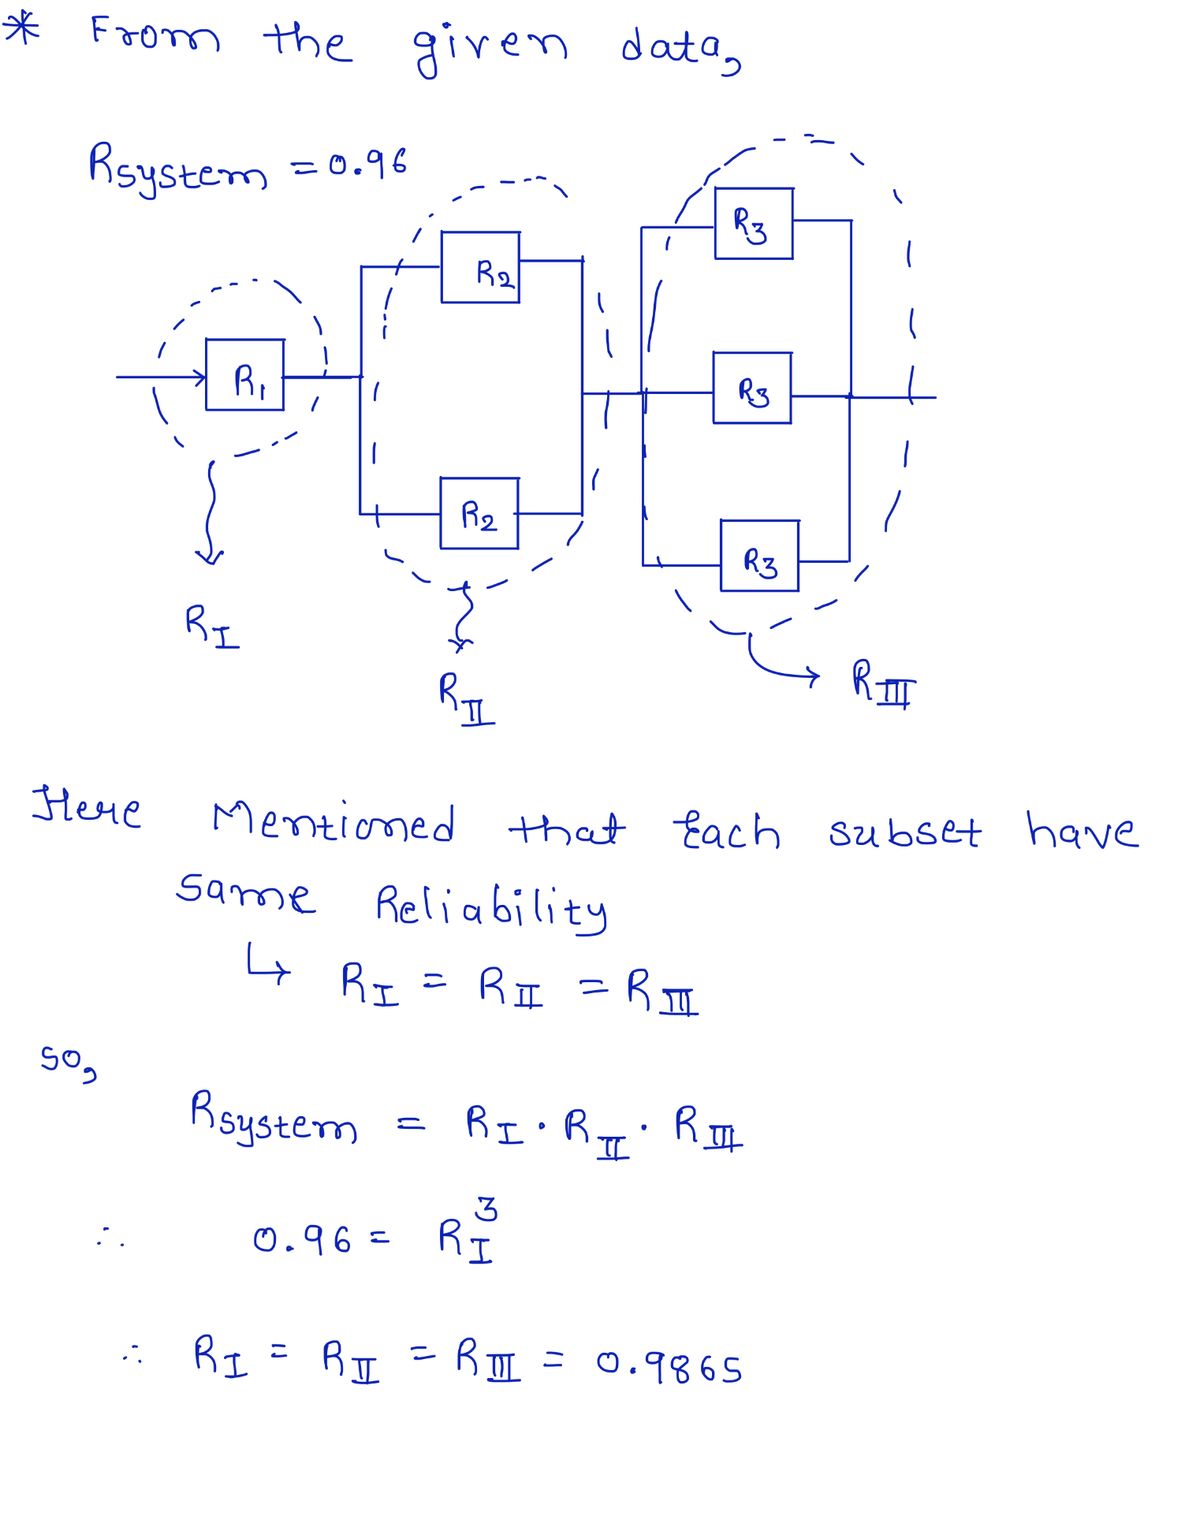 * From the given data,
Rsystem = 0.96
R3
R2
R1
R3
R2
R3
RI
RII
RIII
Here Mentioned that Each subset have
same Reliability
↳ RI = RII = RIII
so,
Rsystem = RI · RII · RIII
∴ 0.96 = RI³
∴ RI = RII = RIII = 0.9865